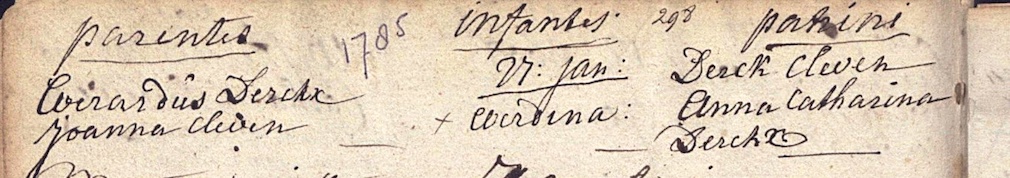 parentes 1785 infantes 298 patrini
27: jan:
Everardus Derckx Derck Cleven
Joanna Cleven + Everdina: Anna Catharina
Derckx